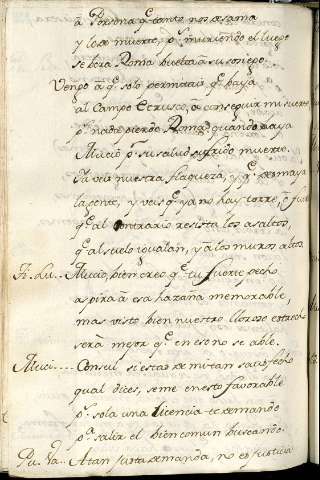 a Porsena q.e tanto nos desama
y los muerte, p.s muriendo el luego
se hera Roma buelta a su sosiego
Vengo a q.e solo permitais q.e baya
al Campo Etrusco, a conseguir mi suerte
p.s nada pierde Roma quando vaya
Mucio p.r su salud sufrido muerte.
Ya veis nuestra flaqueza, y q.e desmaya
la gente, y veis q.e ya no hay torre, o fuerte
q.e al contrario resista los asaltos,
q.e al suelo igualan, y a los muros altos
Mucio, bien creo q.e tu fuerte pecho
aspira a esa hazaña memorable,
mas visto bien nuestro lloroso estrecho
será mejor q.e en eso no se able.
Muci.... Consul si estas de mi tan satisfecho
qual dices, seme en esto favorable
p.s sola una licencia te demando
p.a salir el bien comun buscando.
Pu. Va.. A tan justa demanda, no es justicia